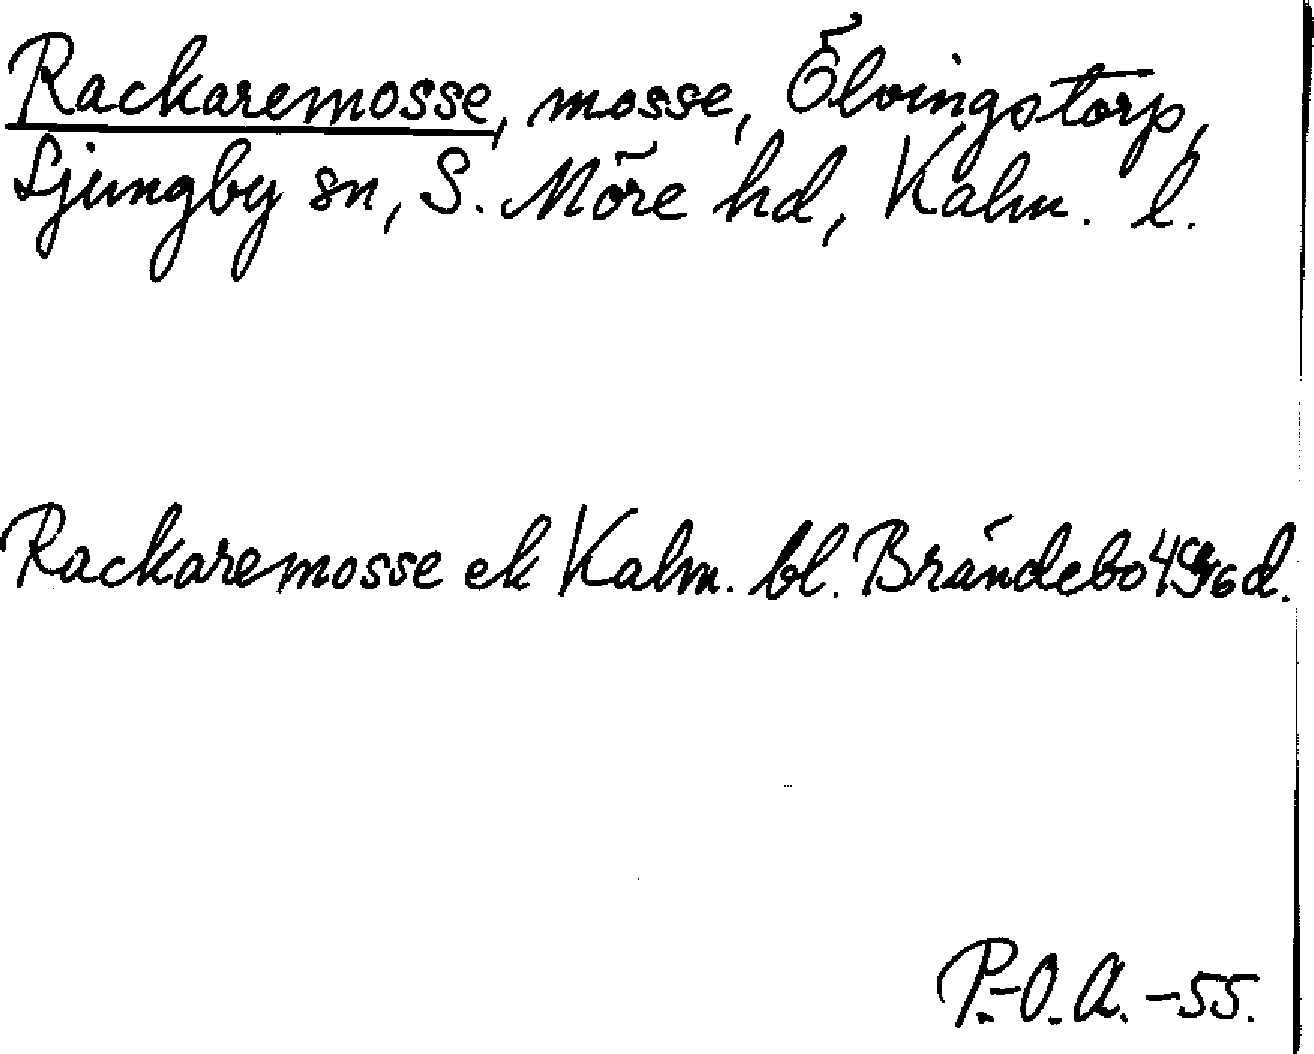 Rackaremosse, mosse, Ölvingstorp,
Ljungby sn, S. Möre hd, Kalm. l.
Rackaremosse ek Kalm. bl. Brändebo
P.-O. A. -55.